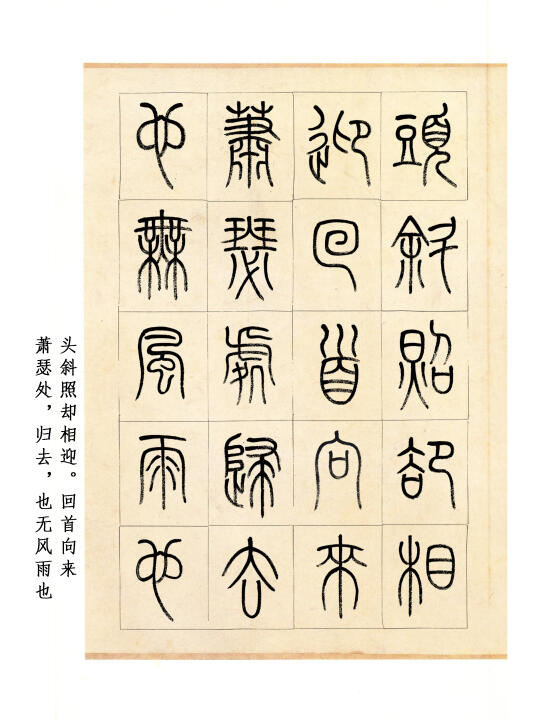 頭斜照却相
迎回首向來
蕭瑟處歸去
也無風雨也
头斜照却相迎。回首向来
萧瑟处，归去，也无风雨也